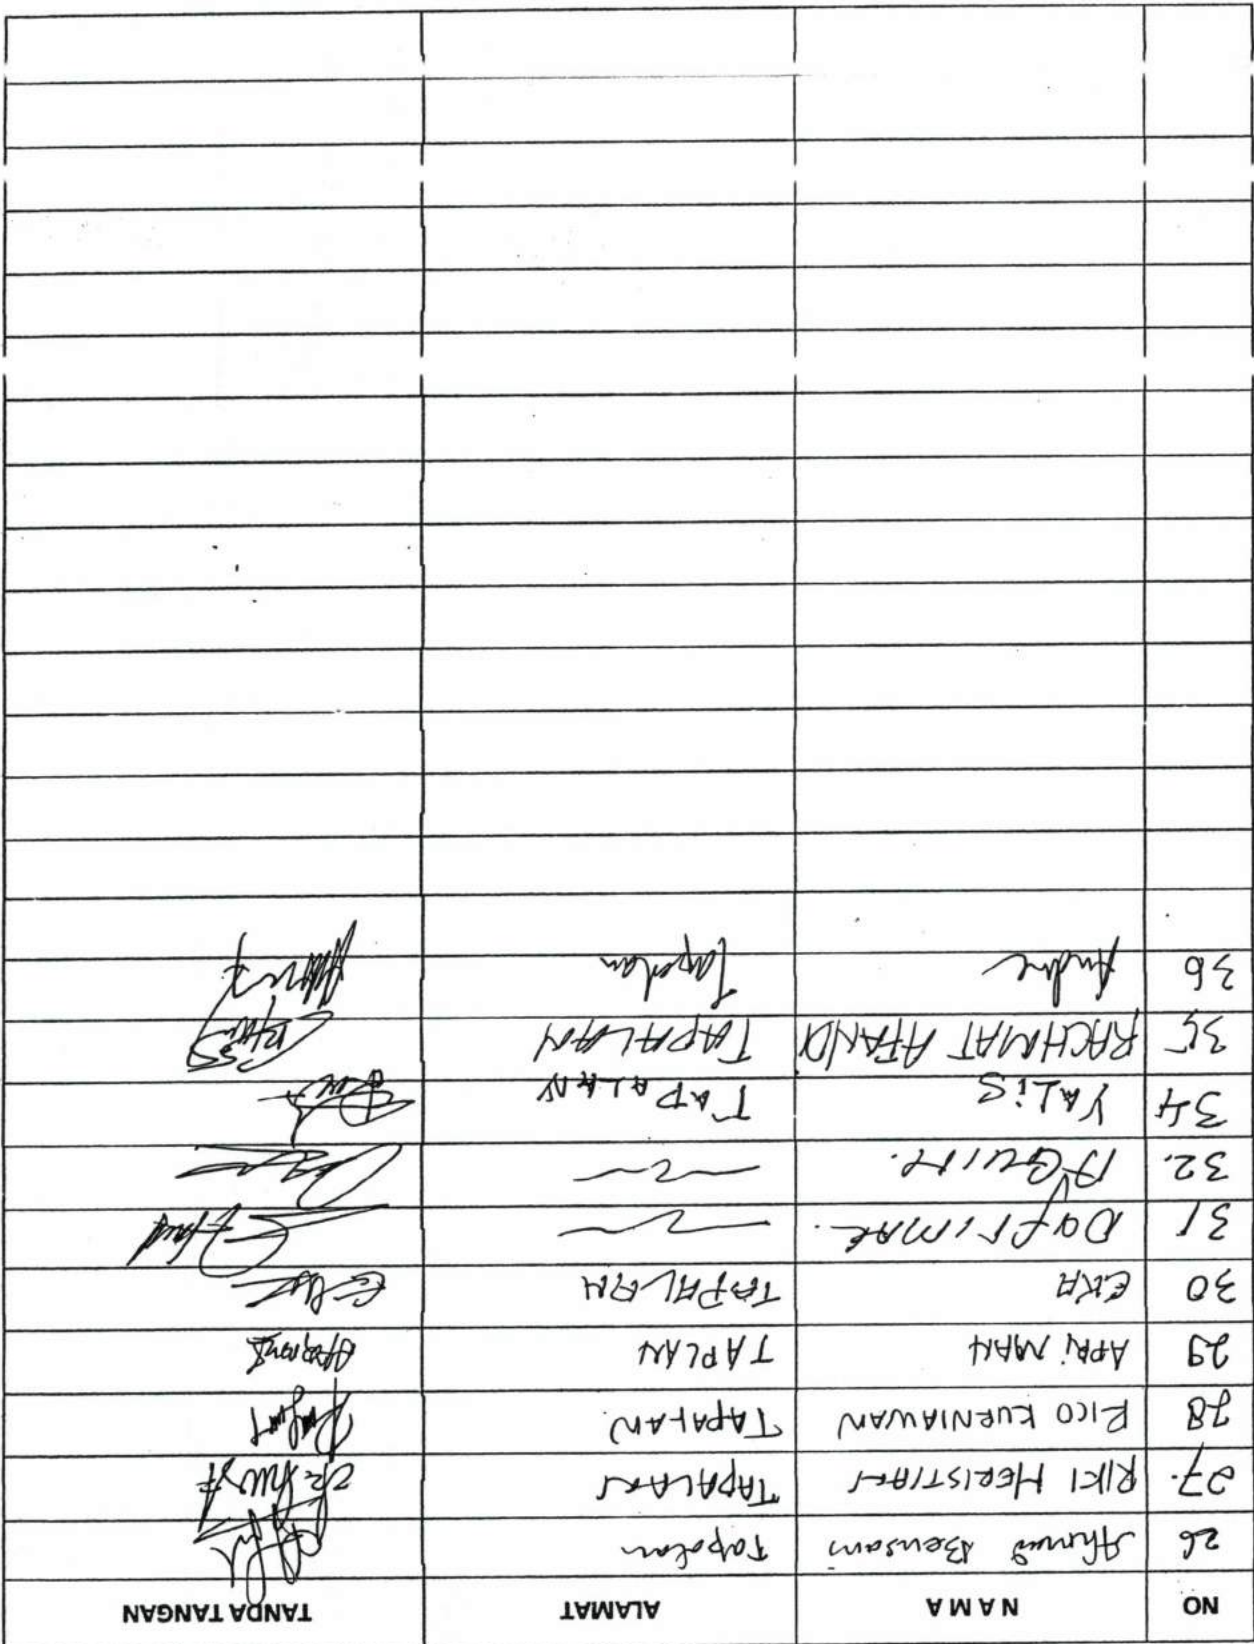 NO NAMA ALAMAT TANDA TANGAN
26 Ahmad Bensani Tapalan
27. RIKI HERISTIAN TAPALAN
28 RICO KURNIAWAN TAPALAN
29 APRIMAN TAPLAN
30 EKA TAPALAN
31
32.
34 YALiS TAPALAN
35 RACHMAT AFANDI TAPALAN
36 Andre Tapalan